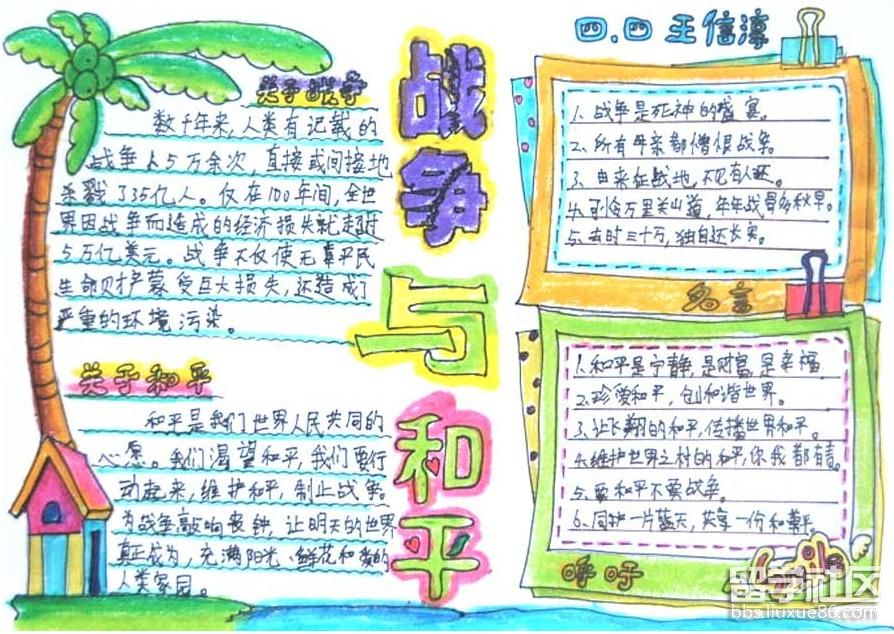 战争与和平
四.四 王信淳
关于战争
数千年来,人类有记载的
战争上5万余次,直接或间接地
杀戮了35亿人。仅在100年间,全世
界因战争而造成的经济损失就超过
5万亿美元。战争不仅使无辜平民
生命财产蒙受巨大损失,还造成了
严重的环境污染。
关于和平
和平是我们世界人民共同的
心愿。我们渴望和平,我们要行
动起来,维护和平,制止战争。
为战争敲响丧钟,让明天的世界
真正成为,充满阳光、鲜花和爱的
人类家园。
1、战争是死神的盛宴。
2、所有母亲都憎恨战争。
3、由来征战地,不见有人还。
4、可怜万里关山道,年年战骨多秋草。
5、去时三十万,独自还长安。
名言
1.和平是宁静,是财富,是幸福
2.珍爱和平,创和谐世界。
3、让飞翔的和平,传播世界和平。
4.维护世界之村的和平,你我都有责。
5、要和平不要战争。
6、同护一片蓝天,共享一份和平。
呼吁
留学社区
bbs.liuxue86.com